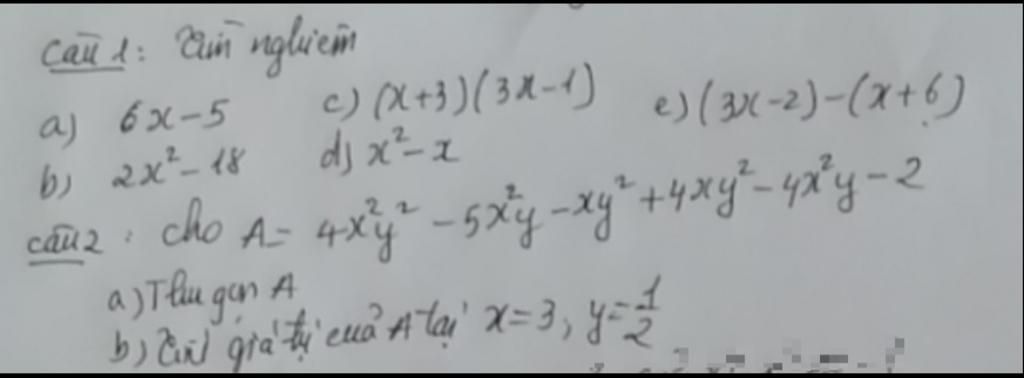 Câu 1: Tìm nghiệm
a) 6x-5 c) (x+3)(3x-1) e) (3x-2)-(x+6)
b) 2x²-18 d) x²-x
câu 2: cho A = 4x²y² - 5x²y - xy² + 4xy² - 4x²y - 2
a) Thu gọn A
b) Tìm giá trị của A tại x=3, y=1/2